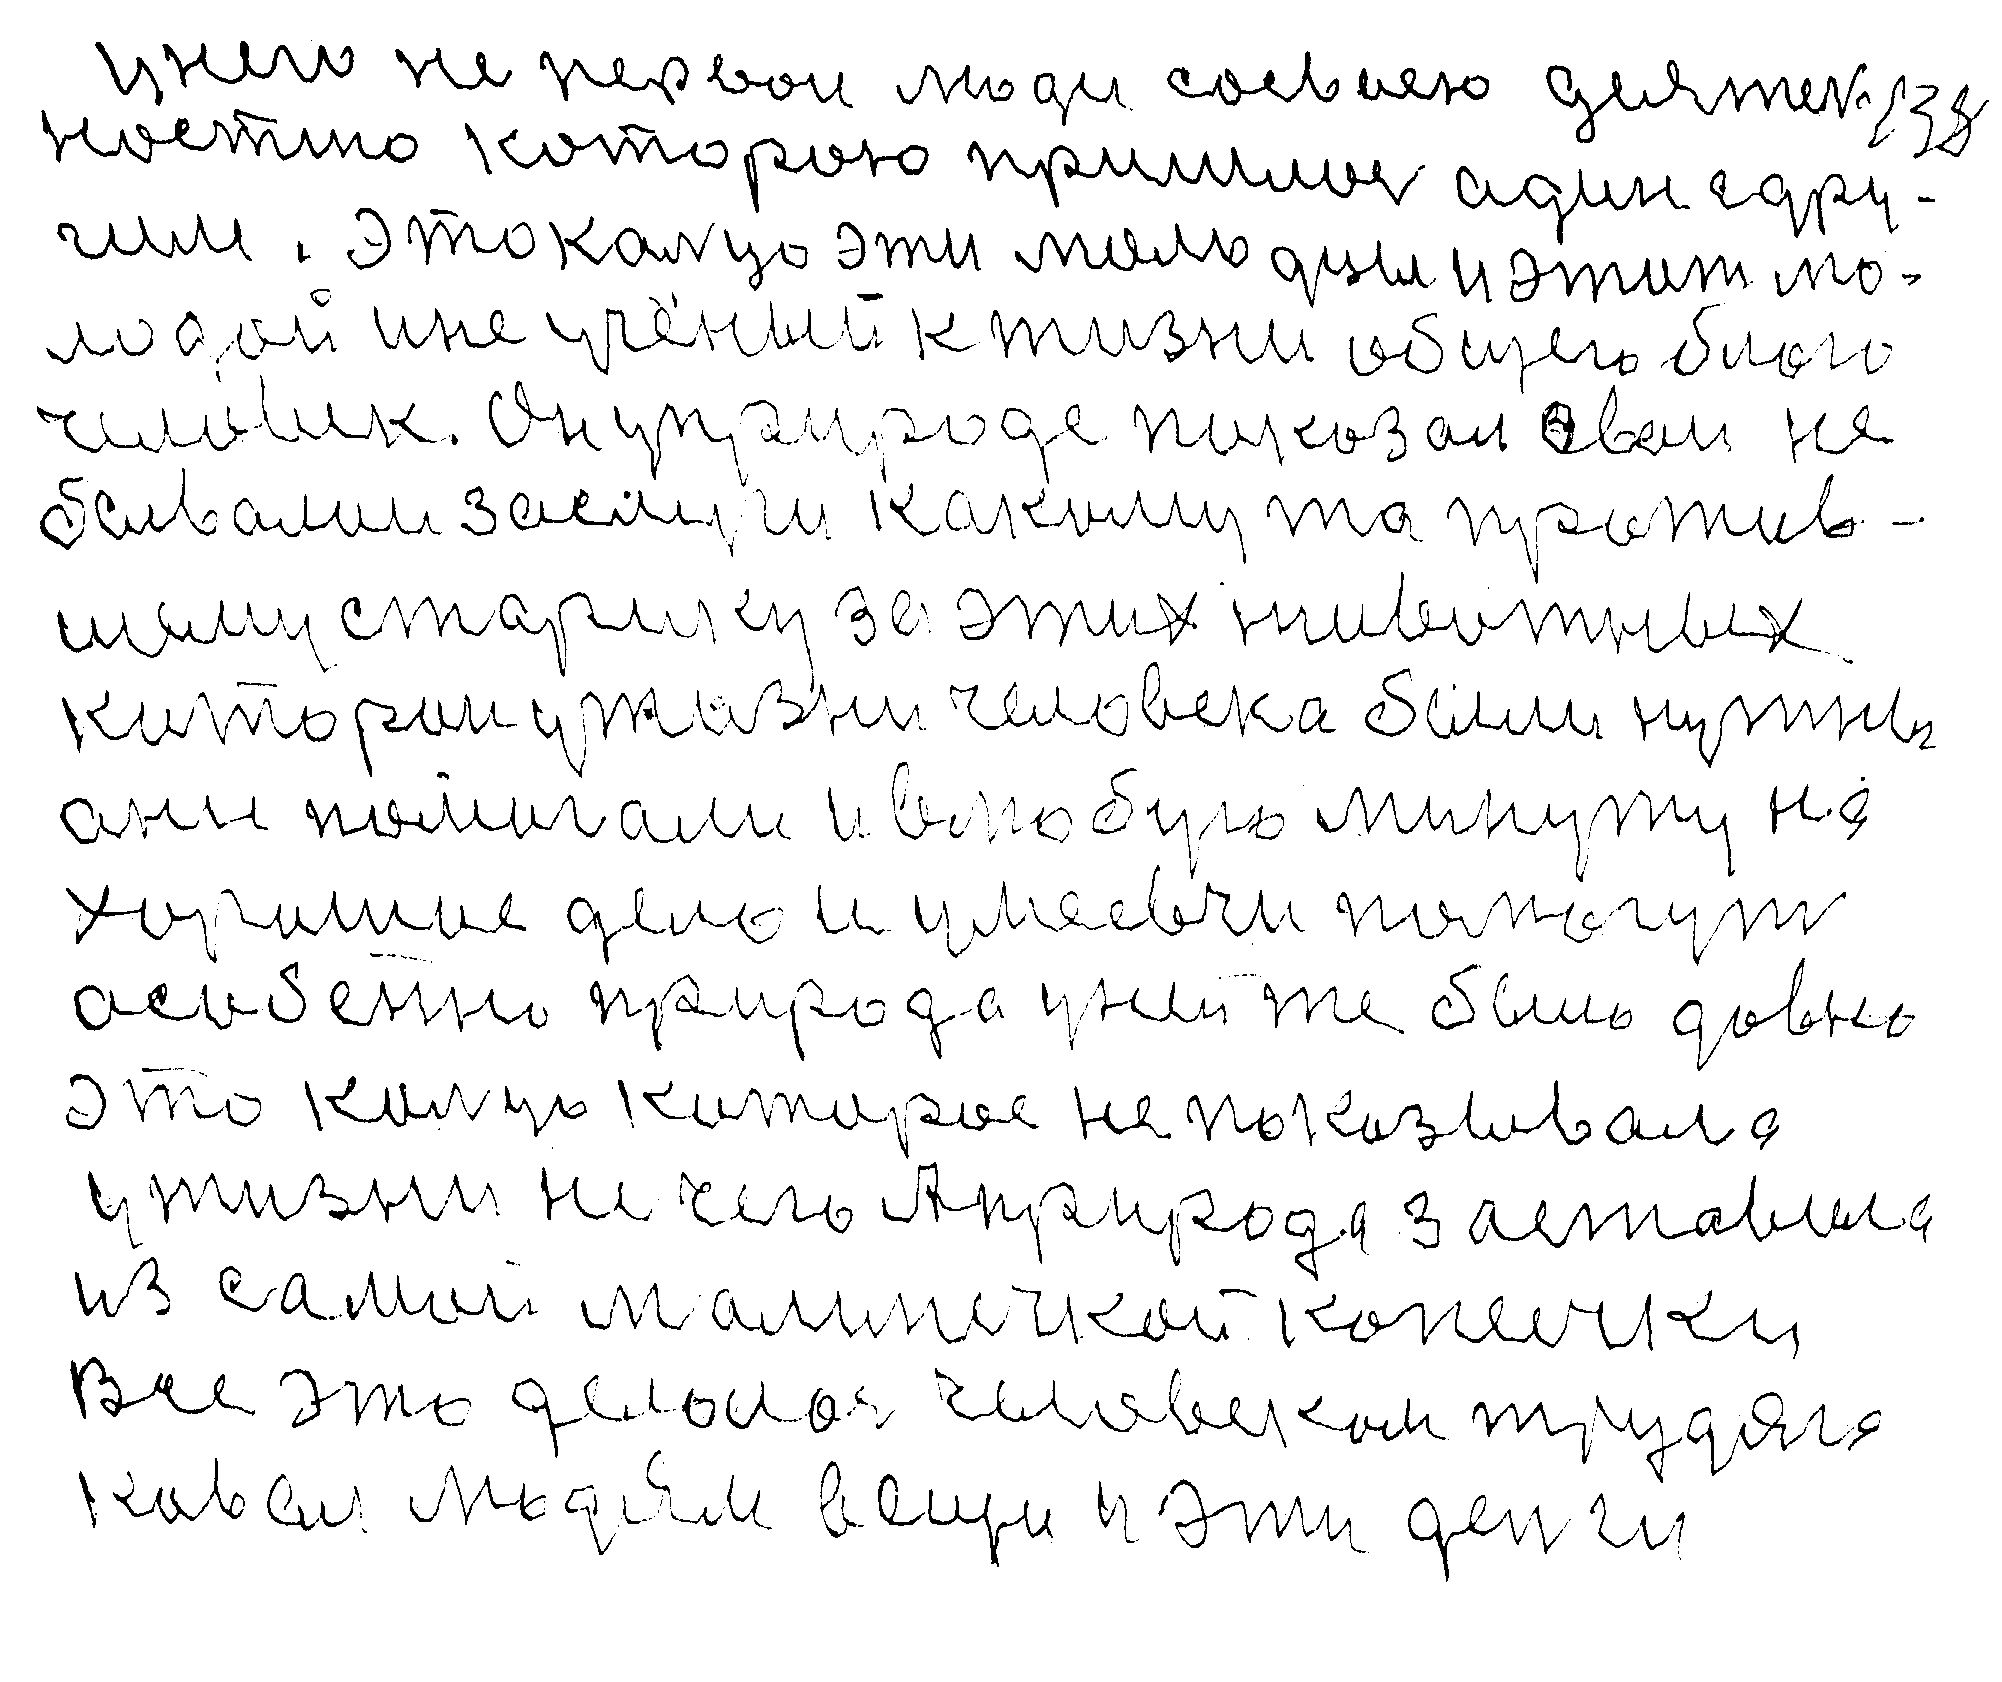 унего не первои люди соевоею деятел 138
ностию которою пришлос адинсдру-
гим. Это калцо эти молодцы и этит мо-
лодой ине учёный к тизни общего благо
человек. Он уприроде показал сваи не
бывалыи заслуги какомута против-
шему старику за этих животных
которои ужизни человека были нужны
ани помогали и влюбую минуту на
хорошое дело и умеевчи помогут
особенно природа уней же было довно
это калцо которое не показывала
у жизни не чего Априрода заставила
из самой малинечкой копеички
Все это делолос человеком трудяга
ковал людям вещи и эти денги